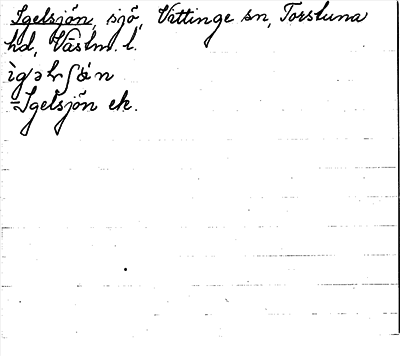 Igelsjön, sjö, Vittinge sn, Torstuna
hd, Västm. l.
ìgəlʃǿn
=Igelsjön ek.